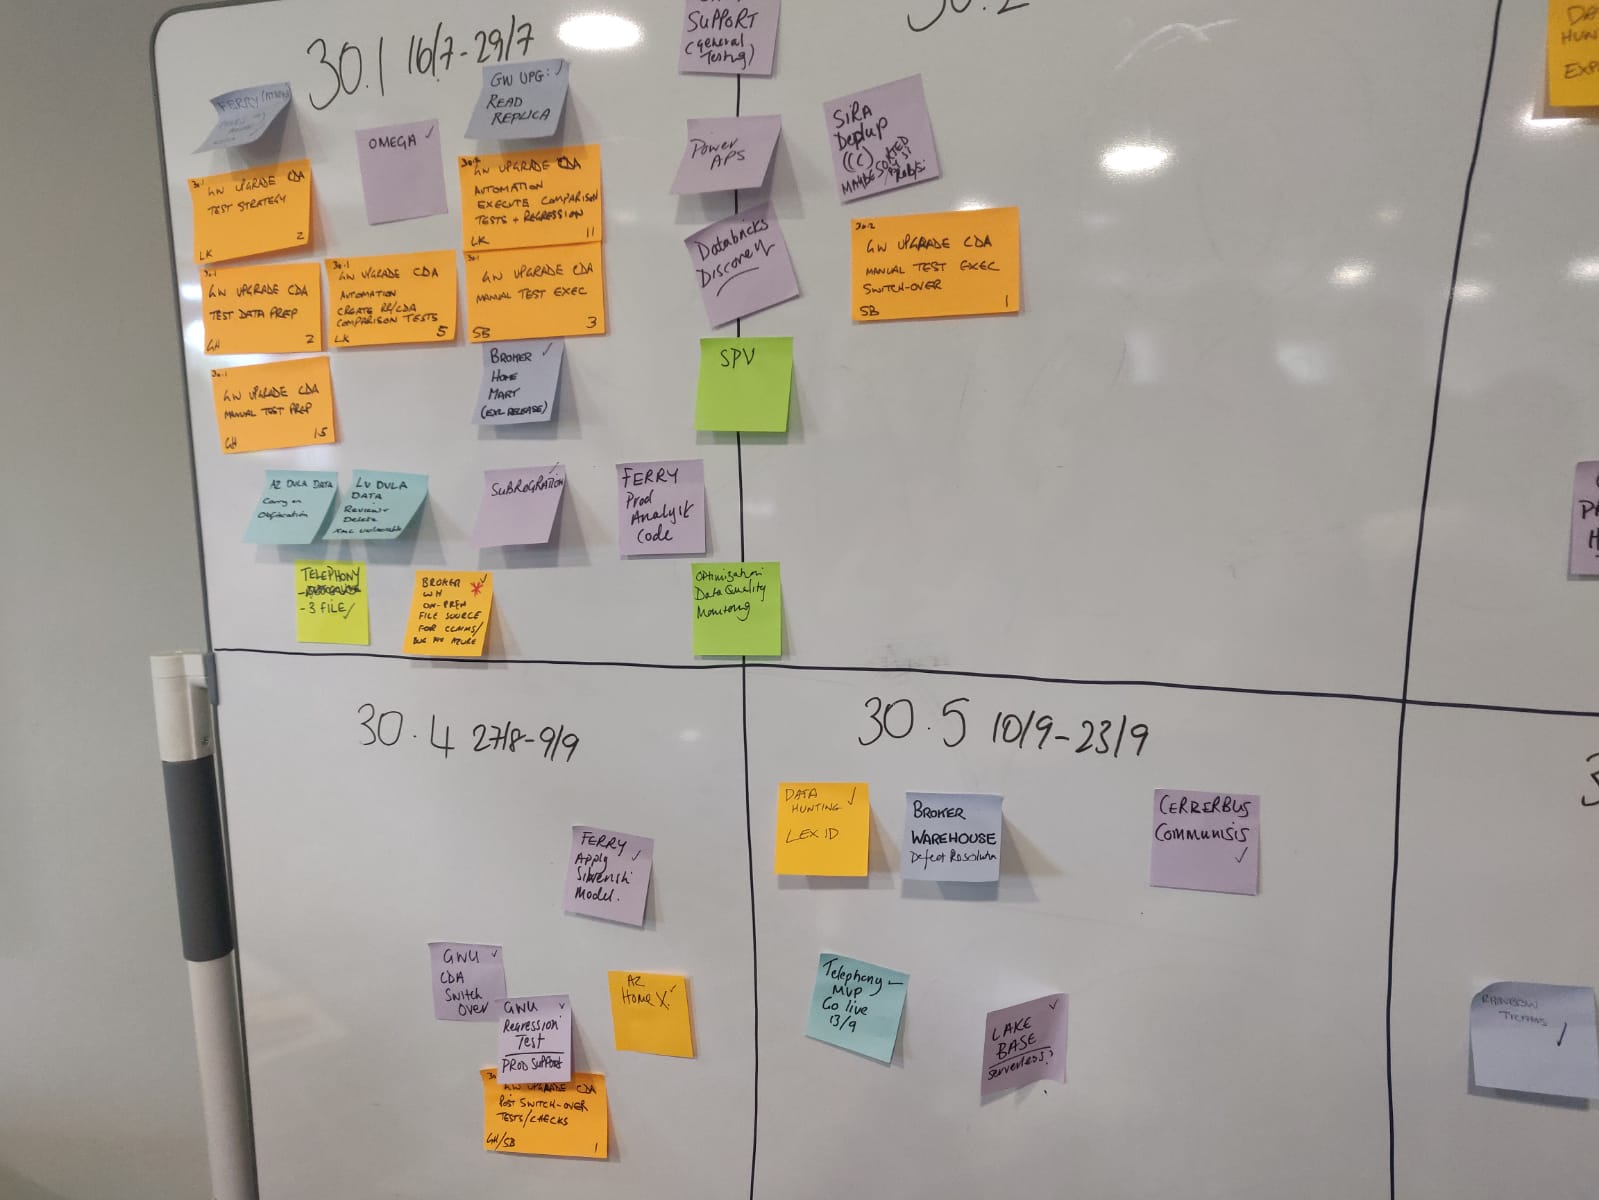 30.1 16/7-29/7
FERRY
GW UPG: ✓
READ
REPLICA
OMEGA ✓
30.1
GW UPGRADE CDA
TEST STRATEGY
2
LK
GW UPGRADE CDA
AUTOMATION
EXECUTE COMPARISON
TESTS + REGRESSION
LK 11
30.1
GW UPGRADE CDA
TEST DATA PREP
GH 2
30.1
GW UPGRADE CDA
AUTOMATION
CREATE RR/CDA
COMPARISON TESTS
LK 5
30.1
GW UPGRADE CDA
MANUAL TEST EXEC
SB 3
30.1
GW UPGRADE CDA
MANUAL TEST PREP
GH 1.5
BROKER ✓
HOME
MART
(EXL RELEASE)
AZ DULA DATA
Carry on
LV DULA
DATA
Review +
Delete
SUBROGRATION ✓
FERRY
Prod
Analyst
Code
TELEPHONY
- 3 FILE/
BROKER ✓
WH
ON-PREM
FILE SOURCE
FOR CLAIMS/
AZURE
SUPPORT
(general
Testing)
Power
APS
Databricks
Discovery
SPV
Optimisation
Data Quality
Monitoring
30.2
SIRA
Dedup
(CC)
MAYBE SORTED
BY SI
30.2
GW UPGRADE CDA
MANUAL TEST EXEC
SWITCH-OVER
SB 1
DA
HUN
EXP
P
H
30.4 27/8-9/9
FERRY
Apply ✓
Model.
GWU ✓
CDA
Switch
Over
GWU ✓
Regression
Test
PROD SUPPORT
GW UPGRADE CDA
POST SWITCH-OVER
TESTS/CHECKS
GH/SB 1
AZ
Home X. ✓
30.5 10/9-23/9
DATA ✓
HUNTING
LEX ID
BROKER
WAREHOUSE
Defect Resolution
CERRERBUS
COMMUNISIS
✓
Telephony
MVP
Go live
13/9
LAKE ✓
BASE
serverless?
RAINBOW
✓